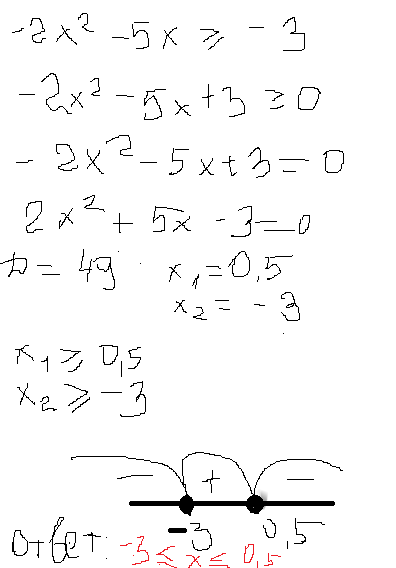 -2x² -5x ≥ -3
-2x² -5x+3 ≥0
-2x² -5x+3=0
2x² + 5x -3=0
D= 49 x₁=0,5
x₂= -3
x₁ ≥ 0,5
x₂ ≥ -3
- + -
-3 0,5
ответ: -3 ≤ x ≤ 0,5